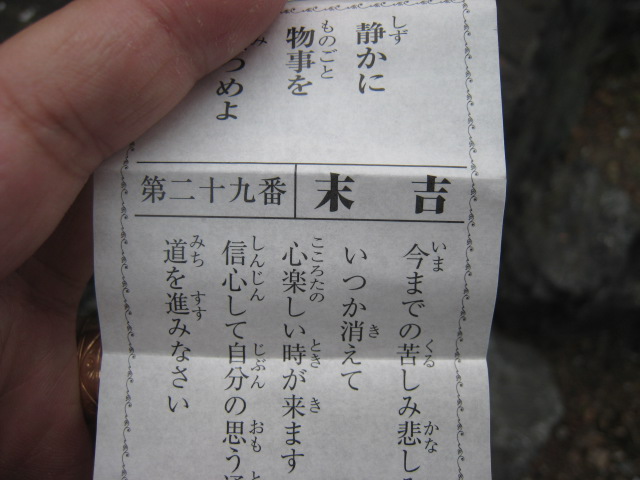 静かに
物事を
つめよ
末吉
第二十九番
今までの苦しみ悲し
いつか消えて
心楽しい時が来ます
信心して自分の思う
道を進みなさい